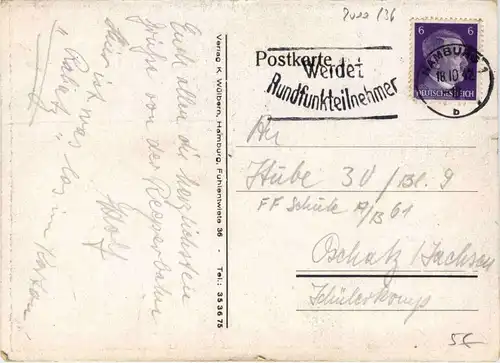 Euch allen die herzlichsten
Grüße von der Reeperbahn
hier ist was los im
"
Wolf
Verlag K. Wülbern, Hamburg, Fuhlentwiete 36 - Tel.: 35 36 75
Postkarte
Werdet
Rundfunkteilnehmer
6 6
DEUTSCHES REICH
HAMBURG 1
18.10.42
b
An
Stube 30 / Bl. 9
FF Schule A/B 61
Oschatz / Sachsen
Schülerkomp
5€